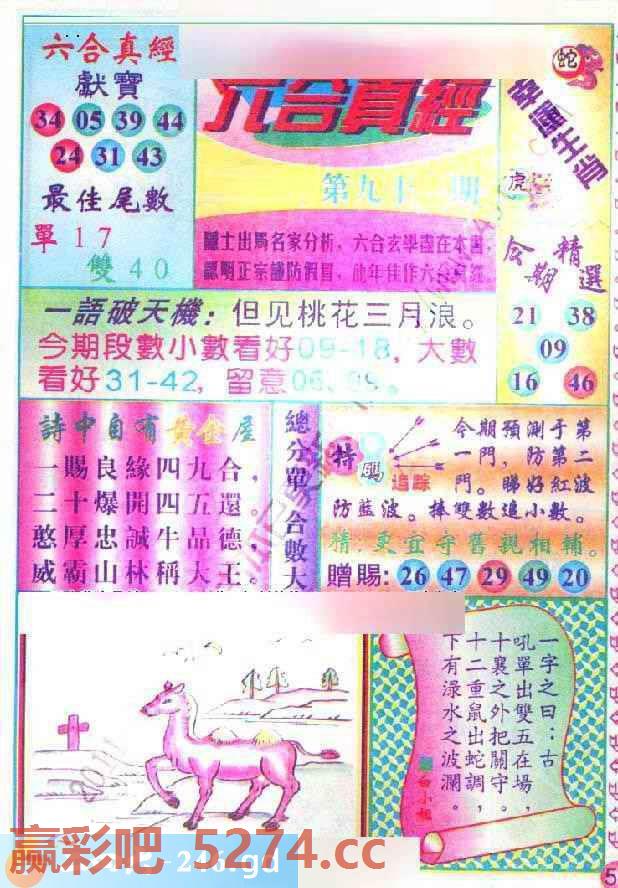 六合真經
獻寶
34 05 39 44
24 31 43
最佳尾數
單 17
雙 40
六合真經
第九十 期
隱士出馬名家分析，六合玄學盡在本書，
認明正宗謹防假冒，此年佳作六合真經
蛇
幸運生肖
虎
今期精選
21 38
09
16 46
一語破天機：但见桃花三月浪。
今期段數小數看好09-18，大數
看好31-42，留意06、09。
詩中自有黃金屋
一賜良緣四九合，
二十爆開四五還。
憨厚忠誠牛品德，
威霸山林稱大王。
總分單 合數大
特碼
追踪
今期預測于第
一門，防第二
門。睇好紅波
防藍波。捧雙數追小數。
精，更宜守舊親相輔。
贈賜: 26 47 29 49 20
一字之曰：古
吼單出雙五在場，
十襄之外把關守。
十二重鼠出蛇調，
下有渌水之波瀾。
白小姐
赢彩吧 5274.cc
5